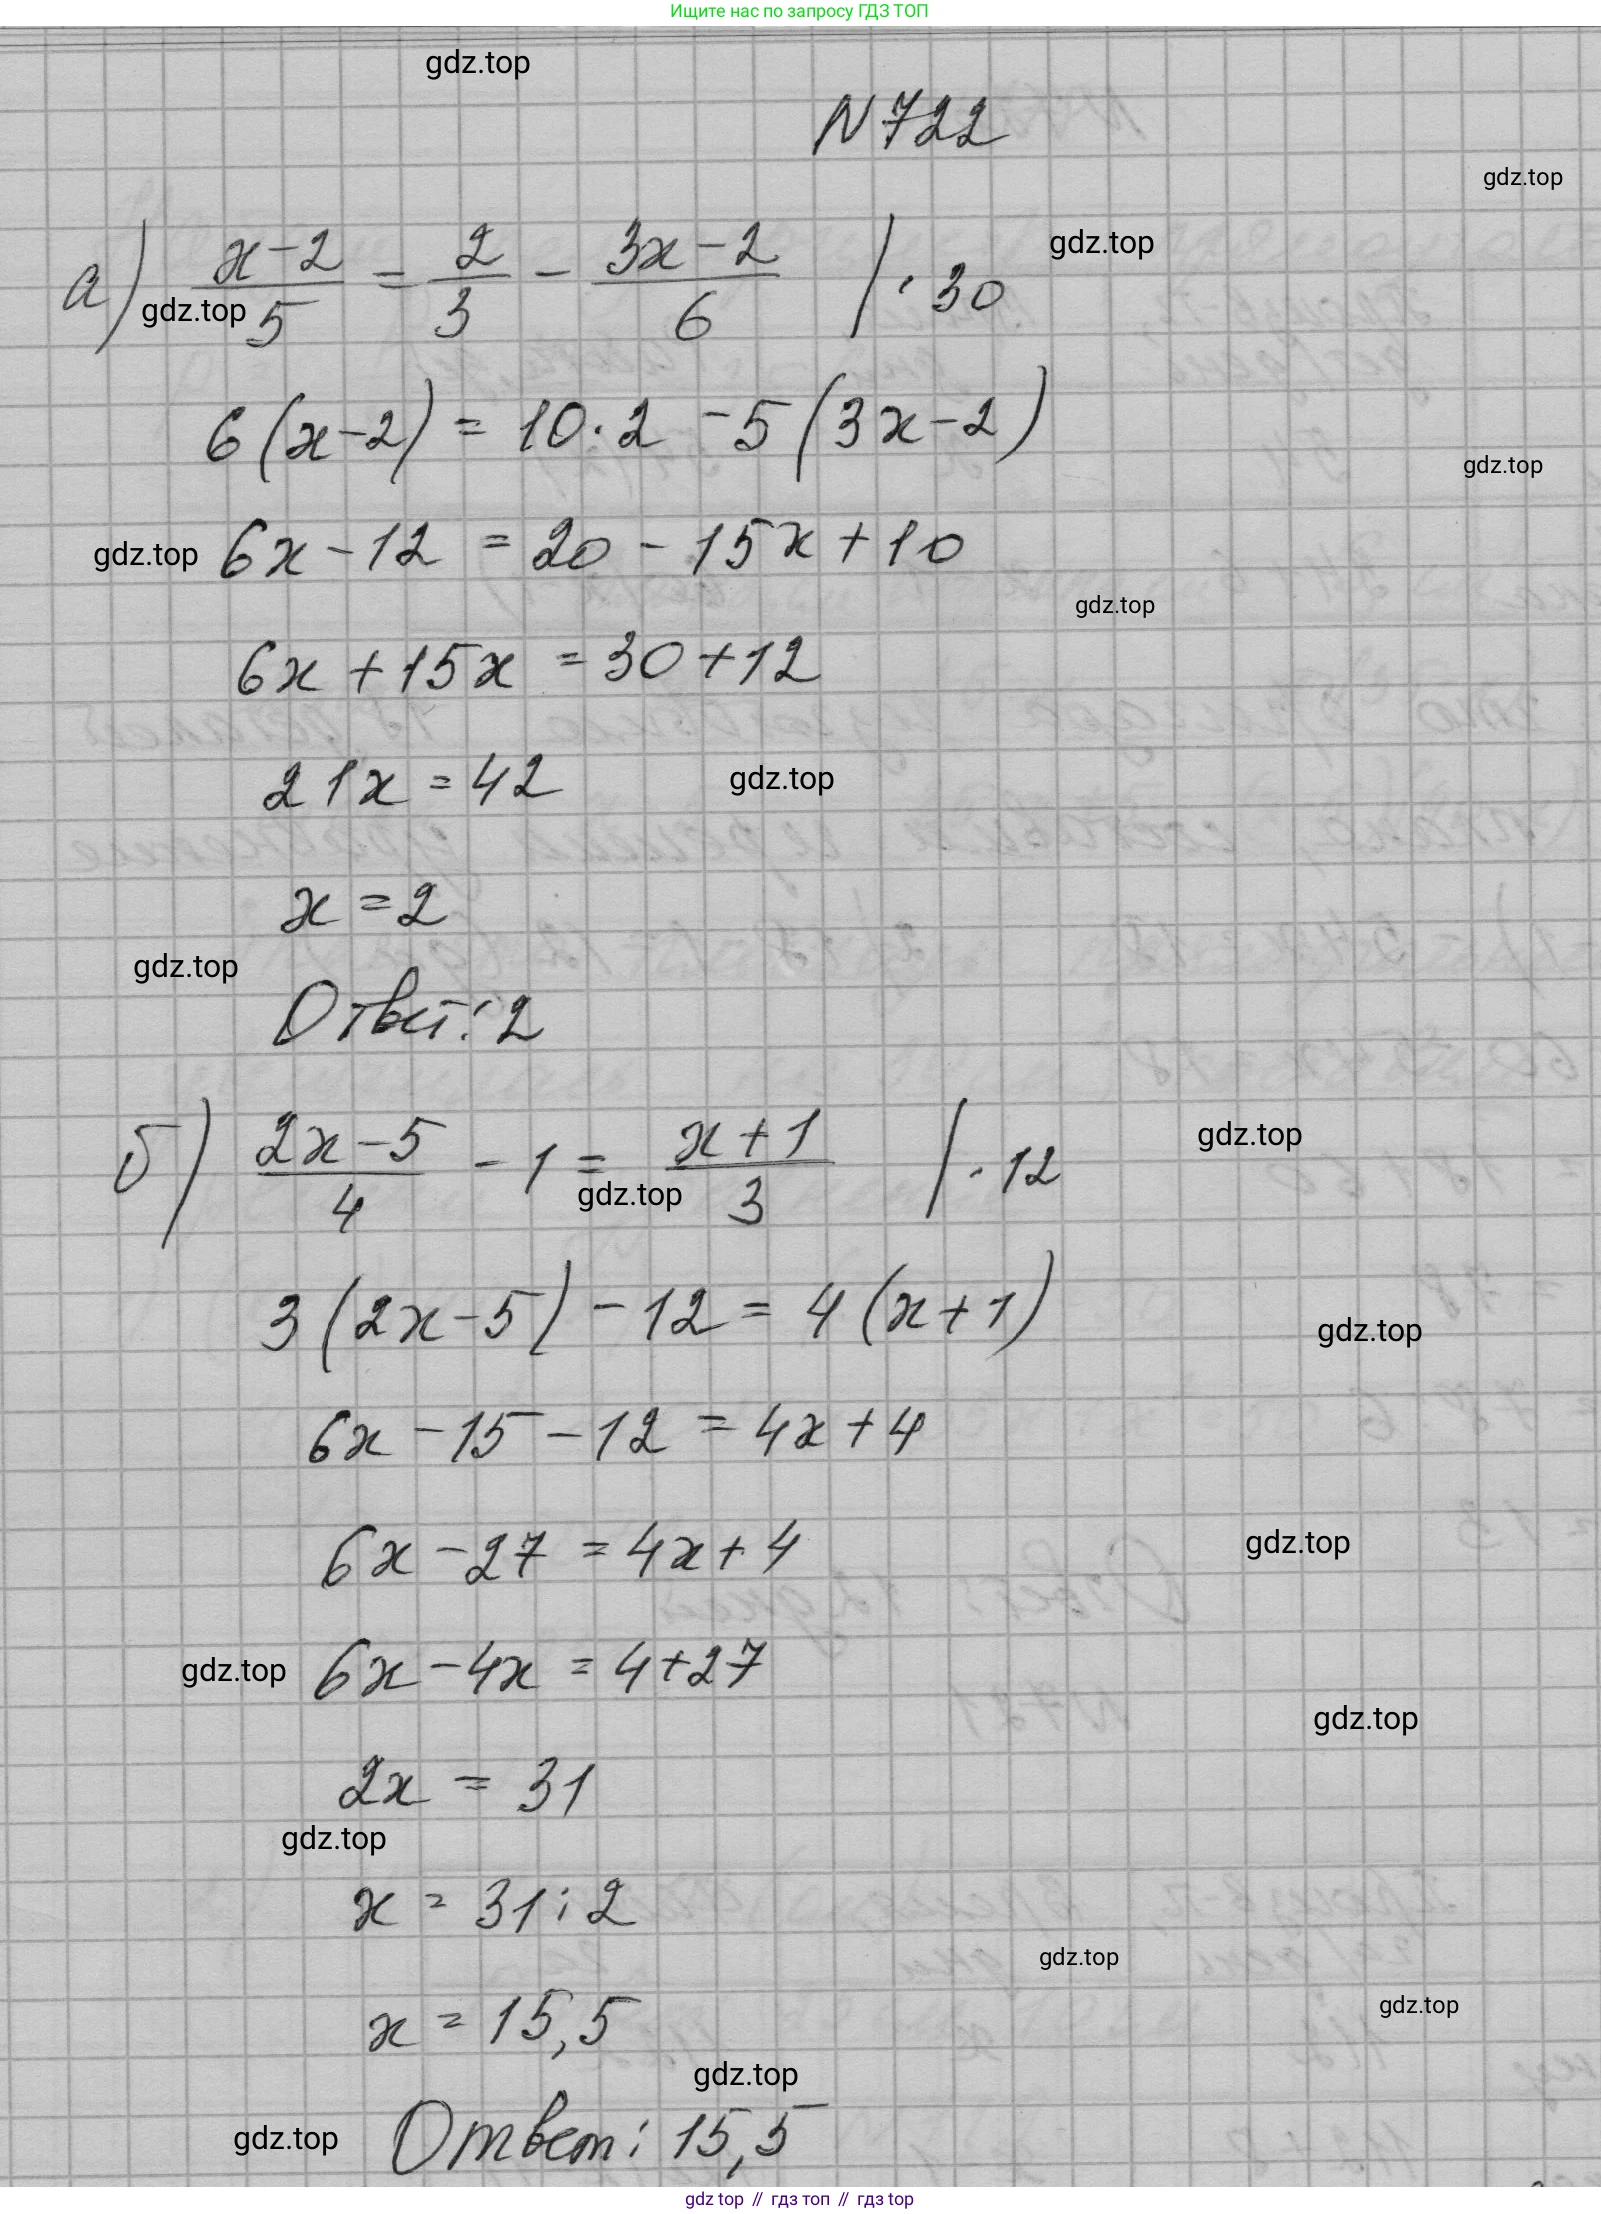 Ищите нас по запросу ГДЗ ТОП
gdz.top
N 722
gdz.top
а) (x-2)/5 = 2/3 - (3x-2)/6 | · 30
gdz.top
gdz.top
6(x-2) = 10·2 - 5(3x-2)
gdz.top
gdz.top 6x - 12 = 20 - 15x + 10
gdz.top
6x + 15x = 30 + 12
21x = 42
gdz.top
x = 2
gdz.top
Ответ: 2
б) (2x-5)/4 - 1 = (x+1)/3 | · 12
gdz.top
gdz.top
3(2x-5) - 12 = 4(x+1)
gdz.top
6x - 15 - 12 = 4x + 4
6x - 27 = 4x + 4
gdz.top
gdz.top 6x - 4x = 4 + 27
gdz.top
2x = 31
gdz.top
x = 31 : 2
gdz.top
gdz.top
x = 15,5
gdz.top
gdz.top Ответ: 15,5
gdz top // гдз топ // gdz.top